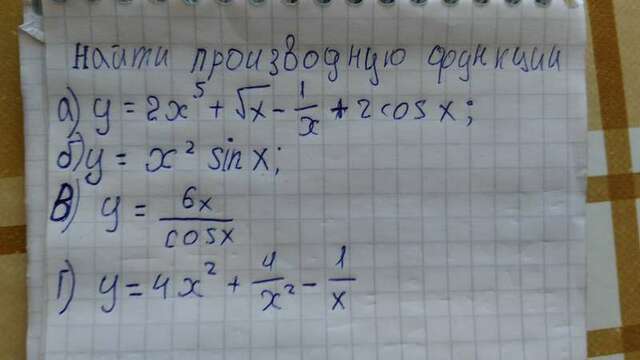 Найти производную функции
а) y = 2x⁵ + √x - 1/x + 2cos x;
б) y = x² sin x;
в) y = 6x/cosx
г) y = 4x² + 4/x² - 1/x